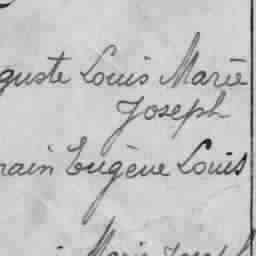 guste Louis Marie
Joseph
rain Eugène Louis
Marie Joseph